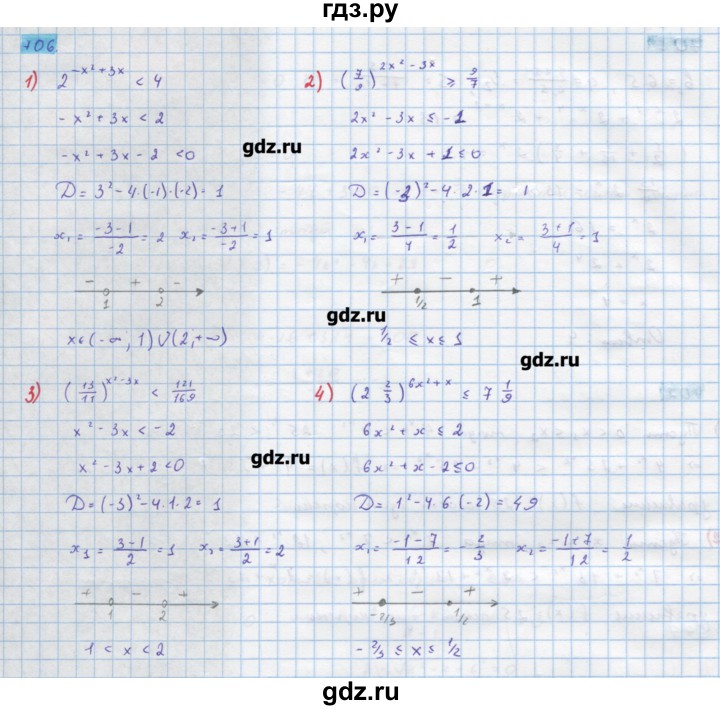 гдз.ру
706.
1) 2^(-x²+3x) < 4
-x² + 3x < 2
-x² + 3x - 2 < 0
D = 3² - 4·(-1)·(-2) = 1
x₁ = (-3-1)/(-2) = 2 x₂ = (-3+1)/(-2) = 1
- + -
1 2
x ∈ (-∞; 1) ∪ (2; +∞)
2) (7/9)^(2x²-3x) ≥ 9/7
2x² - 3x ≤ -1
2x² - 3x + 1 ≤ 0
D = (-3)² - 4·2·1 = 1
x₁ = (3-1)/4 = 1/2 x₂ = (3+1)/4 = 1
+ - +
1/2 1
1/2 ≤ x ≤ 1
gdz.ru
gdz.ru
3) (13/11)^(x²-3x) < 121/169
x² - 3x < -2
x² - 3x + 2 < 0
D = (-3)² - 4·1·2 = 1
x₁ = (3-1)/2 = 1 x₂ = (3+1)/2 = 2
+ - +
1 2
1 < x < 2
4) (2 2/3)^(6x²+x) ≤ 7 1/9
6x² + x ≤ 2
6x² + x - 2 ≤ 0
D = 1² - 4·6·(-2) = 49
x₁ = (-1-7)/12 = -2/3 x₂ = (-1+7)/12 = 1/2
+ - +
-2/3 1/2
-2/3 ≤ x ≤ 1/2
gdz.ru
gdz.ru
gdz.ru